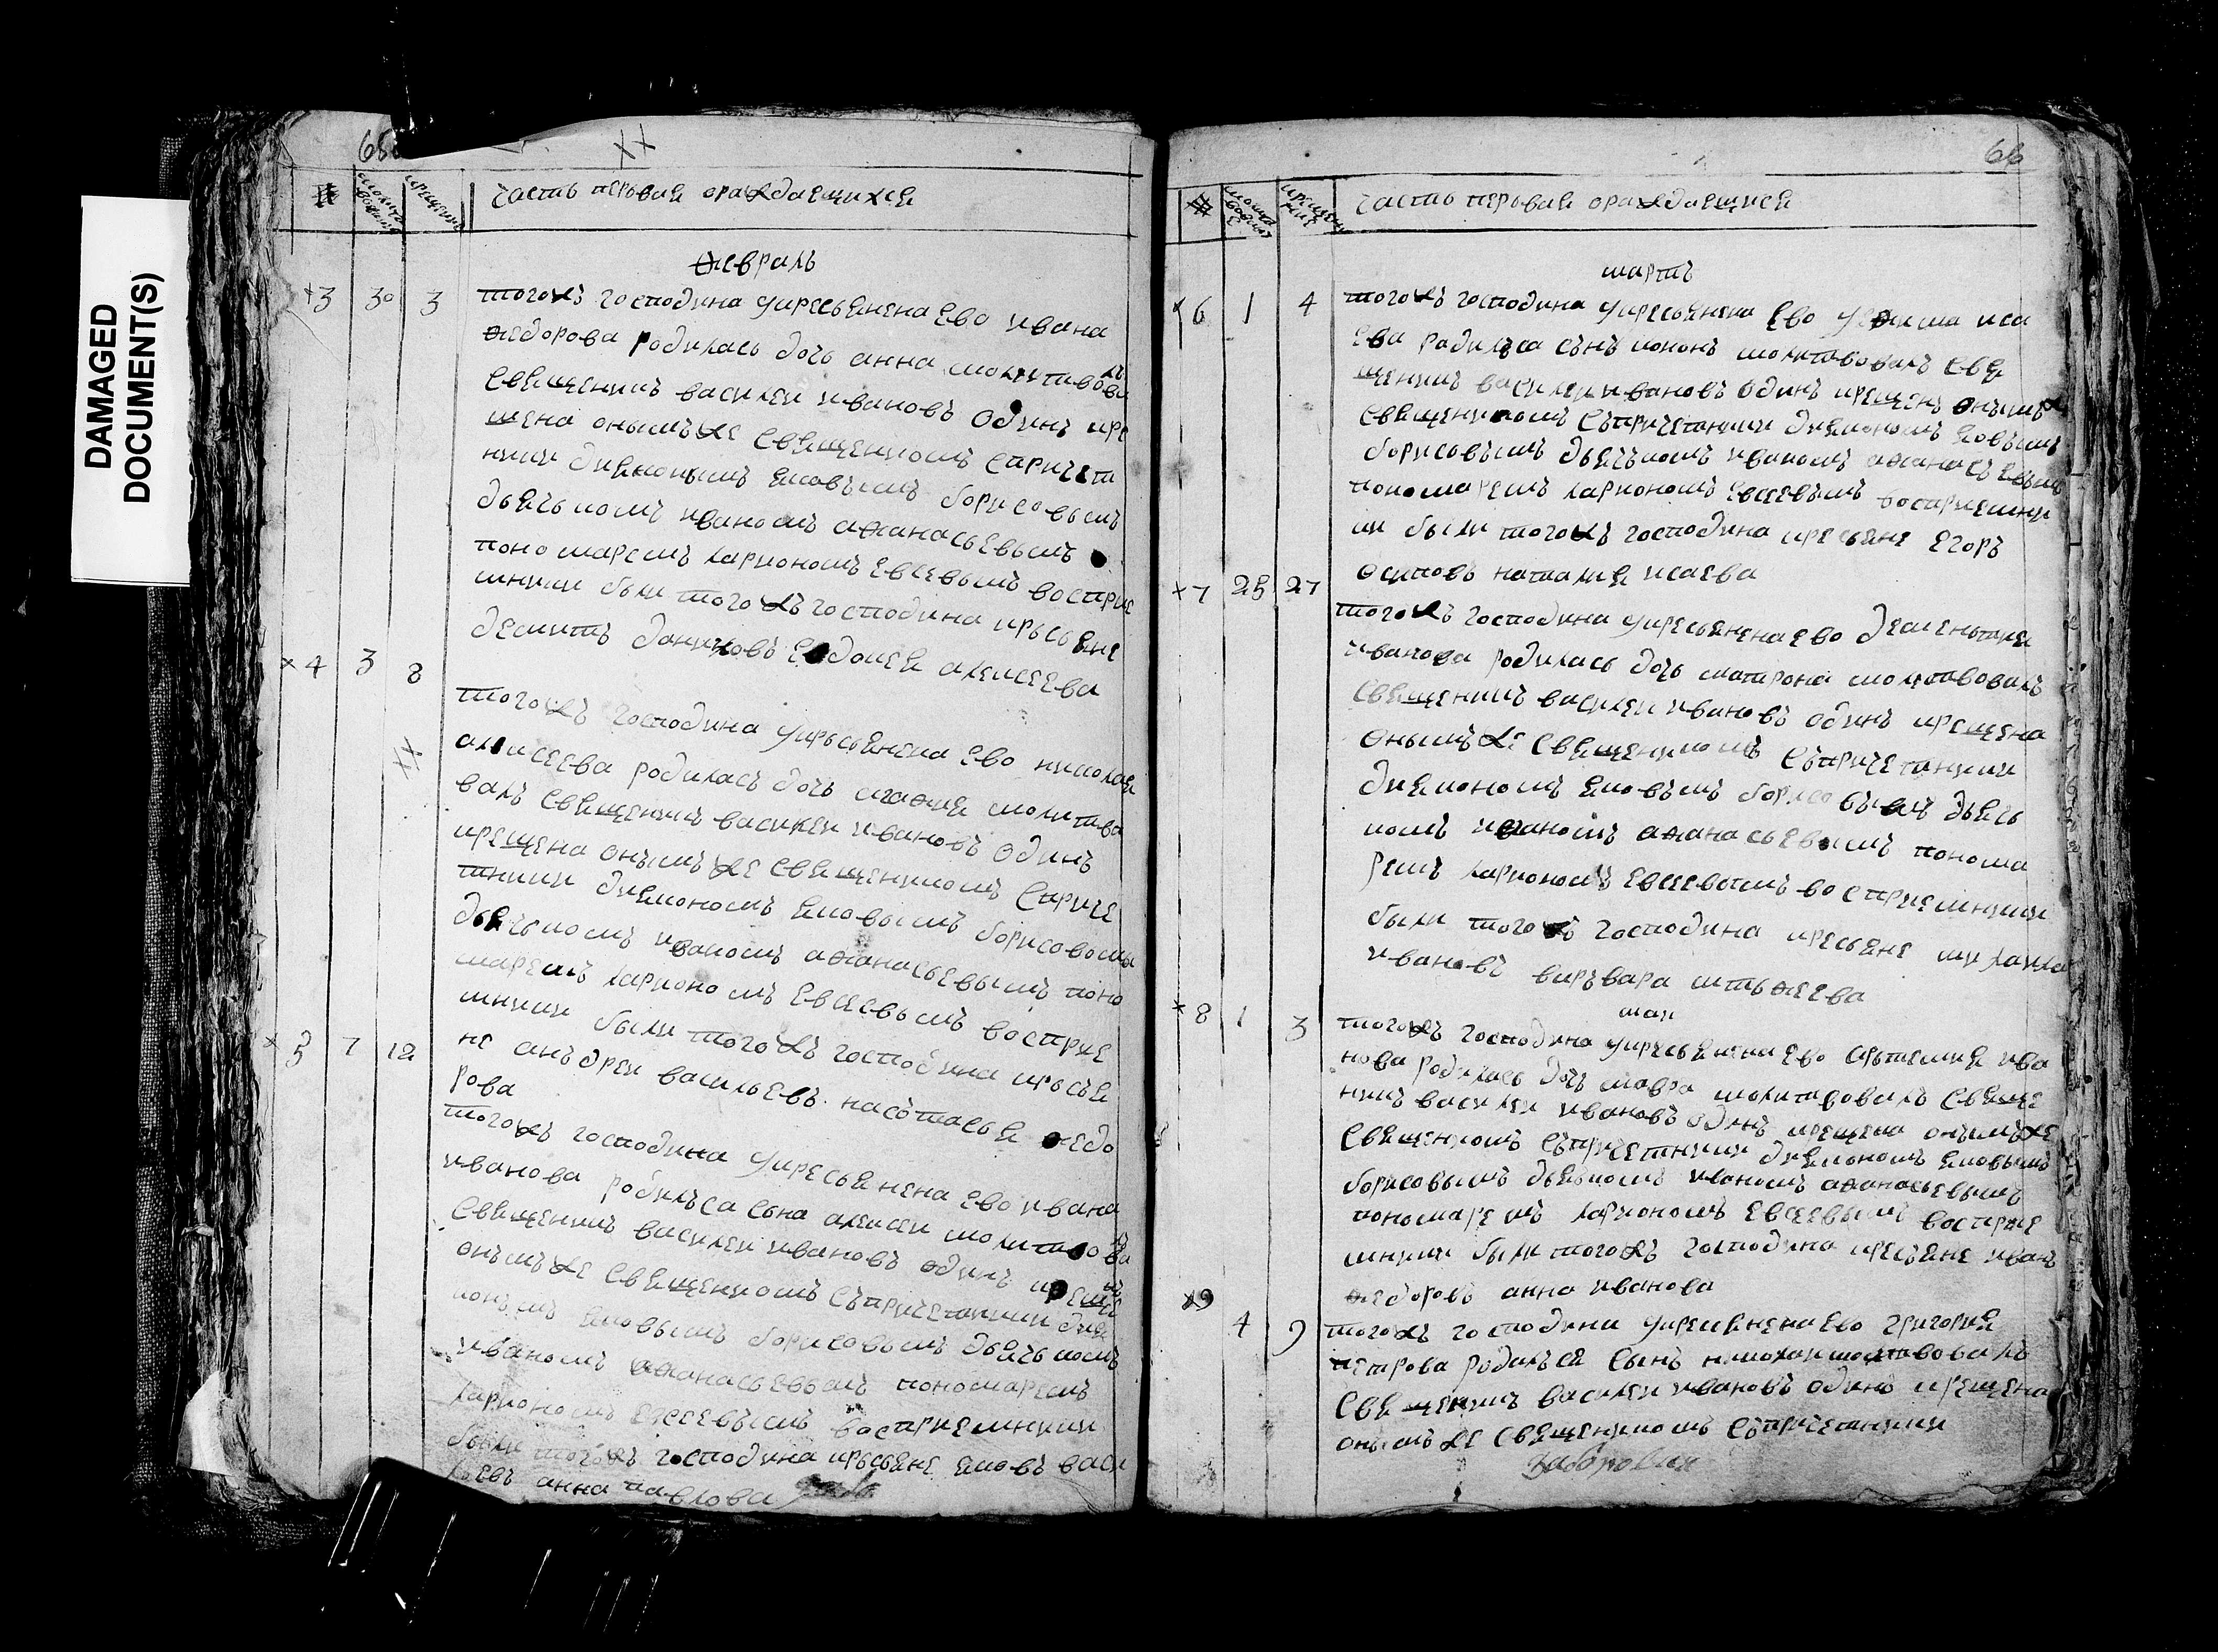 DAMAGED
DOCUMENT(S)
XX
молитвование
крещение
часть первая ораждаещихся
февраль
+3 30 3 тогожъ господина укресьянена ево ивана
федорова родилась дочь анна молитвовалъ
священикъ василеи ивановъ одинъ кре
щена онымъже священикомъ спричетн
ники диякономъ яковымъ борисовымъ
дьячькомъ иваномъ афанасьевымъ
пономаремъ лариономъ евсевымъ восприе
мники были тогожъ господина крьсьяне
алексеева
×4 3 8 тогожъ господина укрьсьянена ево николая
алексеева родилась дочь агафия молитво
валъ священикъ василеи ивановъ одинъ
крещена онымъже священикомъ сприче
тники диякономъ яковымъ борисовымъ
дьячькомъ иваномъ афанасьевымъ поно
маремъ лариономъ евсевымъ восприе
мники были тогожъ господина крьсья
не анъдреи васильевъ настасья федо
рова
×5 7 12 тогожъ господина укресьянена ево ивана
иванова родилъса сына алексеи молитвовалъ
священикъ василеи ивановъ одинъ крещенъ
онымъже священикомъ съпричетники дия
кономъ яковымъ борисовымъ дьячькомъ
иваномъ афанасьевымъ пономаремъ
лариономъ евсеевымъ восприемники
были тогожъ господина крьсьяне яковъ васи
льевъ анна павлова
66
часть первая ораждаещися
мартъ
×6 1 4 тогожъ господина укресьянена ево ефима иса
ева родилъса сынъ конон молитвовалъ свя
щеникъ василеи ивановъ одинъ крещенъ онымъж
священикомъ съпричетники диякономъ яковымъ
борисовымъ дьячъкомъ иваномъ афанасъевым
пономаремъ лариономъ евсеевымъ восприемни
ки были тогожъ господина кресьяне егоръ
осиповъ наталия исаева
×7 25 27 тогожъ господина укресьянена ево дементия
иванова родилась дочь матрона молитвовалъ
священикъ василеи ивановъ одинъ крещена
онымъже священикомъ съпричетники
диякономъ яковымъ борисовымъ дьячь
комъ иваномъ афанасьевымъ понома
ремъ лариономъ евсеевымъ восприемники
были тогожъ господина кресьяне михаила
ивановъ варъвара матьфеева
маи
×8 1 3 тогожъ господина укресьянена ево артемия ива
нова родилась дочь мавра молитвовалъ свяще
никъ василеи ивановъ одинъ крещена онымъже
священикомъ съпричетники диякономъ яковымъ
борисовымъ дьячкомъ иваномъ афанасьевымъ
пономаремъ лариономъ евсеевымъ восприе
мники были тогожъ господина кресьяне иванъ
федоровъ анна иванова
×9 4 9 тогожъ господина укресьянена ево григория
петрова родилъся сынъ николаи молитвовалъ
священикъ василеи ивановъ одинъ крещена
онымъже священикомъ съпричетники